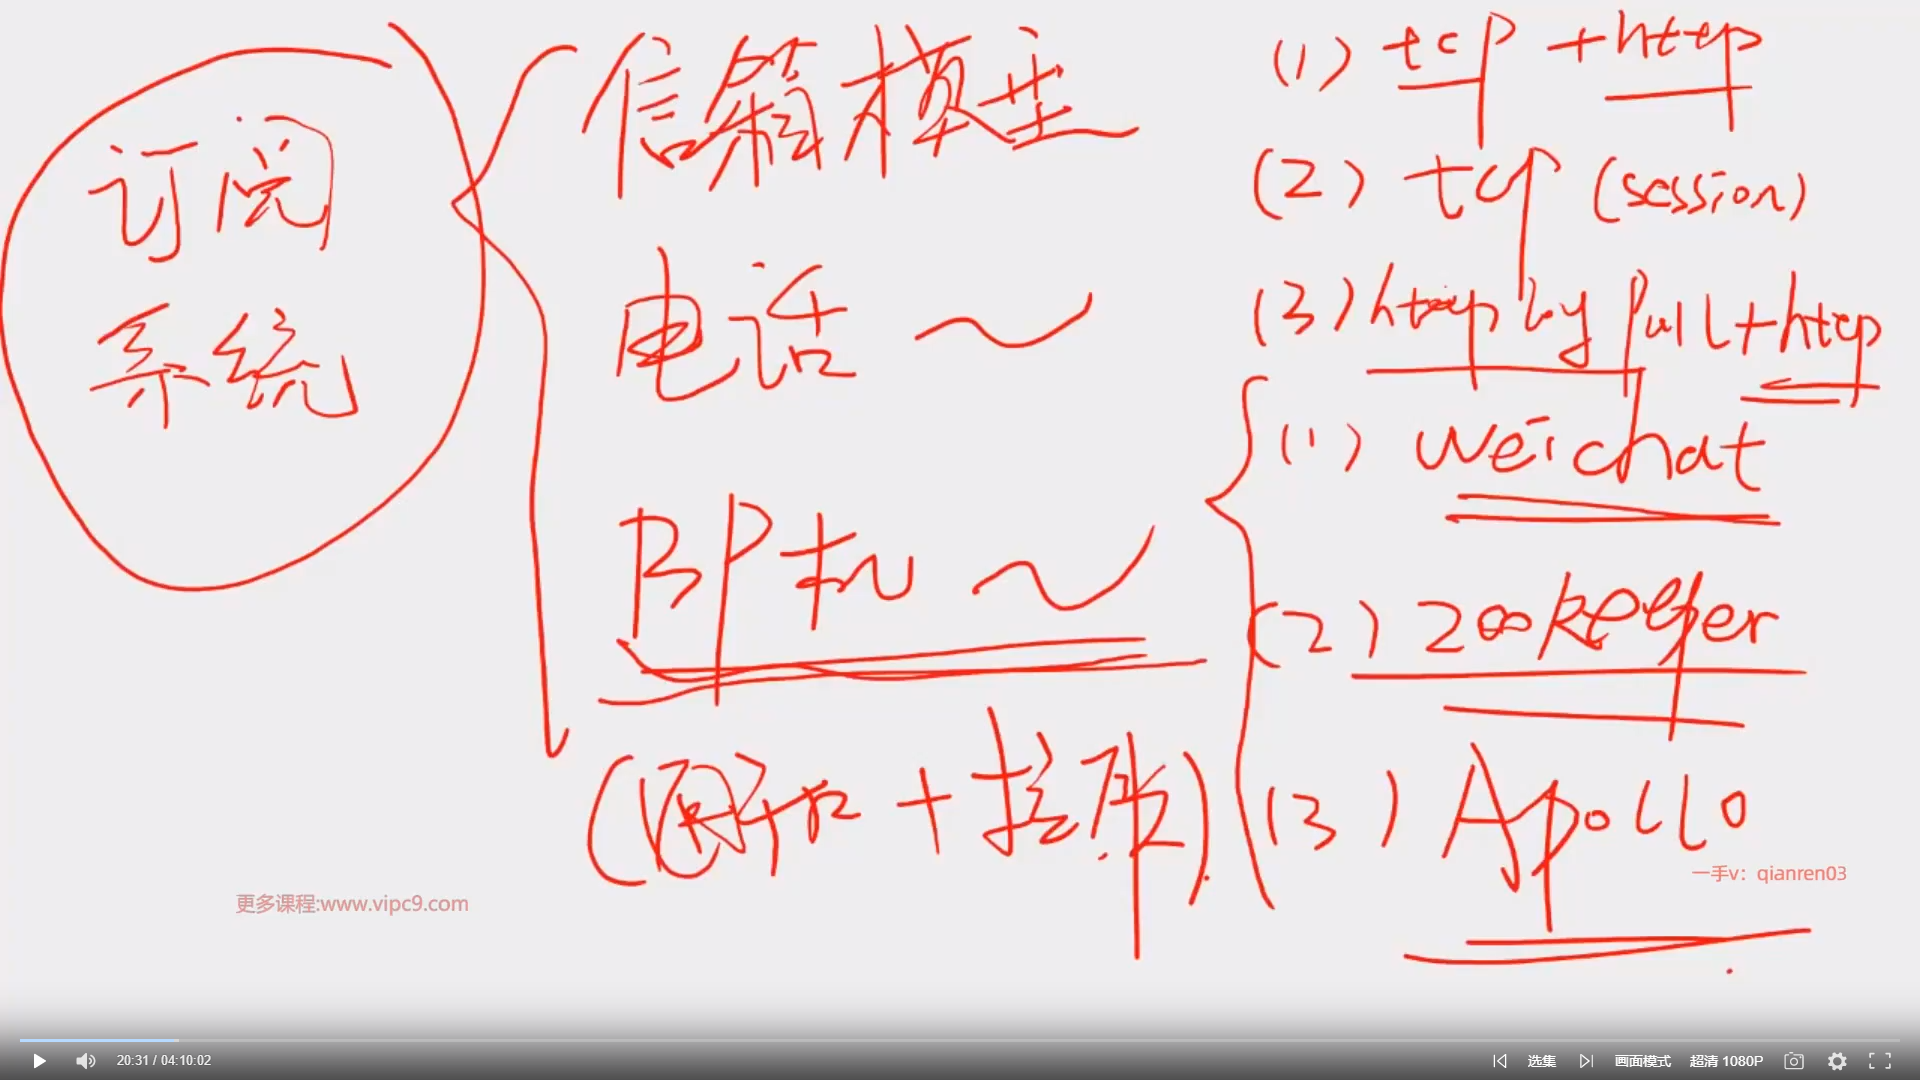 订阅
系统
信箱模型
电话～
BP机～
(通知 + 拉取)
(1) tcp + http
(2) tcp (session)
(3) http by pull + http
(1) weichat
(2) zookeeper
(3) Apollo
一手v：qianren03
更多课程:www.vipc9.com
20:31 / 04:10:02
选集
画面模式
超清 1080P